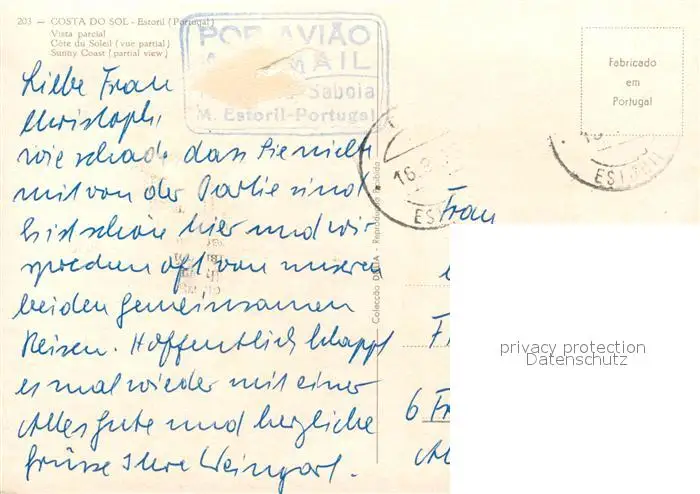 203 — COSTA DO SOL - Estoril (Portugal)
Vista parcial
Côte du Soleil (vue partial)
Sunny Coast (partial view)
POR AVIÃO
MAIL
Saboia
M. Estoril-Portugal
Fabricado
em
Portugal
Liebe Frau
Christoph,
wie schade dass Sie nicht
mit von der Partie sind
Es ist schön hier und wir
sprechen oft von unseren
beiden gemeinsamen
Reisen. Hoffentlich klappt
es mal wieder mit einer
Alles gute und herzliche
Grüsse Ihre Weingart.
Colecção DÚLIA - Reprodução Proibida
16
EST
16
ESTORIL
Frau
F
6 Fr
privacy protection
Datenschutz